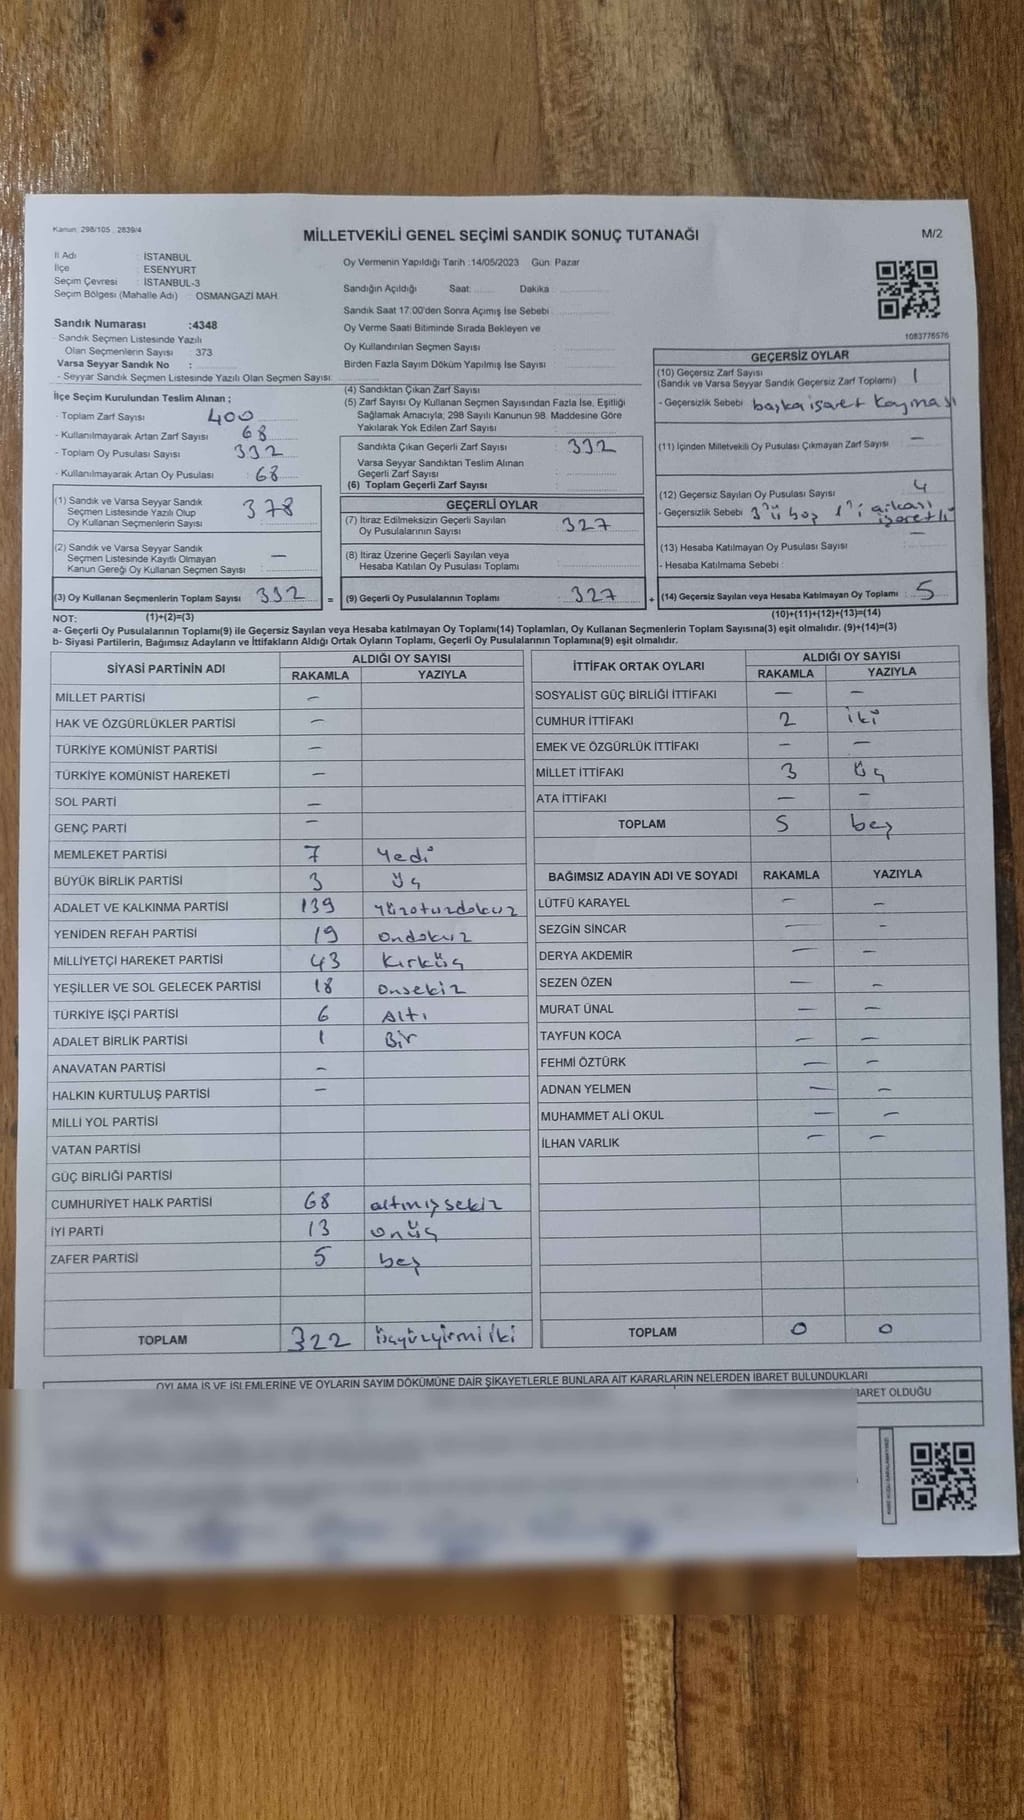 Kanun: 298/105 , 2839/4
MİLLETVEKİLİ GENEL SEÇİMİ SANDIK SONUÇ TUTANAĞI
M/2
İl Adı : İSTANBUL
İlçe : ESENYURT
Seçim Çevresi : İSTANBUL-3
Seçim Bölgesi (Mahalle Adı) : OSMANGAZİ MAH.
Sandık Numarası :4348
- Sandık Seçmen Listesinde Yazılı
Olan Seçmenlerin Sayısı : 373
Varsa Seyyar Sandık No :
- Seyyar Sandık Seçmen Listesinde Yazılı Olan Seçmen Sayısı:
Oy Vermenin Yapıldığı Tarih :14/05/2023 Gün: Pazar
Sandığın Açıldığı Saat: Dakika :
Sandık Saat 17:00'den Sonra Açımış İse Sebebi :
Oy Verme Saati Bitiminde Sırada Bekleyen ve
Oy Kullandırılan Seçmen Sayısı :
Birden Fazla Sayım Döküm Yapılmış İse Sayısı :
1083776576
İlçe Seçim Kurulundan Teslim Alınan ;
- Toplam Zarf Sayısı : 400
- Kullanılmayarak Artan Zarf Sayısı : 68
- Toplam Oy Pusulası Sayısı : 332
- Kullanılmayarak Artan Oy Pusulası : 68
(1) Sandık ve Varsa Seyyar Sandık
Seçmen Listesinde Yazılı Olup
Oy Kullanan Seçmenlerin Sayısı : 378
(2) Sandık ve Varsa Seyyar Sandık
Seçmen Listesinde Kayıtlı Olmayan
Kanun Gereği Oy Kullanan Seçmen Sayısı : —
(3) Oy Kullanan Seçmenlerin Toplam Sayısı : 332 =
(4) Sandıktan Çıkan Zarf Sayısı :
(5) Zarf Sayısı Oy Kullanan Seçmen Sayısından Fazla İse, Eşitliği
Sağlamak Amacıyla; 298 Sayılı Kanunun 98. Maddesine Göre
Yakılarak Yok Edilen Zarf Sayısı :
Sandıkta Çıkan Geçerli Zarf Sayısı : 332
Varsa Seyyar Sandıktan Teslim Alınan
Geçerli Zarf Sayısı :
(6) Toplam Geçerli Zarf Sayısı :
GEÇERLİ OYLAR
(7) İtiraz Edilmeksizin Geçerli Sayılan
Oy Pusulalarının Sayısı : 327
(8) İtiraz Üzerine Geçerli Sayılan veya
Hesaba Katılan Oy Pusulası Toplamı :
(9) Geçerli Oy Pusulalarının Toplamı : 327 +
GEÇERSİZ OYLAR
(10) Geçersiz Zarf Sayısı : 1
(Sandık ve Varsa Seyyar Sandık Geçersiz Zarf Toplamı)
- Geçersizlik Sebebi : başka işaret koyması
(11) İçinden Milletvekili Oy Pusulası Çıkmayan Zarf Sayısı : —
(12) Geçersiz Sayılan Oy Pusulası Sayısı : 4
- Geçersizlik Sebebi : 3'ü boş 1'i arkası
işaretli
(13) Hesaba Katılmayan Oy Pusulası Sayısı : —
- Hesaba Katılmama Sebebi :
(14) Geçersiz Sayılan veya Hesaba Katılmayan Oy Toplamı : 5
NOT: (1)+(2)=(3) (10)+(11)+(12)+(13)=(14)
a- Geçerli Oy Pusulalarının Toplamı(9) ile Geçersiz Sayılan veya Hesaba katılmayan Oy Toplamı(14) Toplamları, Oy Kullanan Seçmenlerin Toplam Sayısına(3) eşit olmalıdır. (9)+(14)=(3)
b- Siyasi Partilerin, Bağımsız Adayların ve İttifakların Aldığı Ortak Oyların Toplamı, Geçerli Oy Pusulalarının Toplamına(9) eşit olmalıdır.
SİYASİ PARTİNİN ADI ALDIĞI OY SAYISI
RAKAMLA YAZIYLA
MİLLET PARTİSİ —
HAK VE ÖZGÜRLÜKLER PARTİSİ —
TÜRKİYE KOMÜNİST PARTİSİ —
TÜRKİYE KOMÜNİST HAREKETİ —
SOL PARTİ —
GENÇ PARTİ —
MEMLEKET PARTİSİ 7 Yedi
BÜYÜK BİRLİK PARTİSİ 3 Üç
ADALET VE KALKINMA PARTİSİ 139 Yüzotuzdokuz
YENİDEN REFAH PARTİSİ 19 Ondokuz
MİLLİYETÇİ HAREKET PARTİSİ 43 Kırküç
YEŞİLLER VE SOL GELECEK PARTİSİ 18 Onsekiz
TÜRKİYE İŞÇİ PARTİSİ 6 Altı
ADALET BİRLİK PARTİSİ 1 Bir
ANAVATAN PARTİSİ —
HALKIN KURTULUŞ PARTİSİ —
MİLLİ YOL PARTİSİ
VATAN PARTİSİ
GÜÇ BİRLİĞİ PARTİSİ
CUMHURİYET HALK PARTİSİ 68 altmışsekiz
İYİ PARTİ 13 onüç
ZAFER PARTİSİ 5 beş
TOPLAM 322 üçyüzyirmiiki
İTTİFAK ORTAK OYLARI ALDIĞI OY SAYISI
RAKAMLA YAZIYLA
SOSYALİST GÜÇ BİRLİĞİ İTTİFAKI — —
CUMHUR İTTİFAKI 2 iki
EMEK VE ÖZGÜRLÜK İTTİFAKI — —
MİLLET İTTİFAKI 3 üç
ATA İTTİFAKI — —
TOPLAM 5 beş
BAĞIMSIZ ADAYIN ADI VE SOYADI RAKAMLA YAZIYLA
LÜTFÜ KARAYEL — —
SEZGİN SİNCAR — —
DERYA AKDEMİR — —
SEZEN ÖZEN — —
MURAT ÜNAL — —
TAYFUN KOCA — —
FEHMİ ÖZTÜRK — —
ADNAN YELMEN — —
MUHAMMET ALİ OKUL — —
İLHAN VARLIK — —
TOPLAM 0 0
OYLAMA İŞ VE İŞLEMLERİNE VE OYLARIN SAYIM DÖKÜMÜNE DAİR ŞİKAYETLERLE BUNLARA AİT KARARLARIN NELERDEN İBARET BULUNDUKLARI
İBARET OLDUĞU